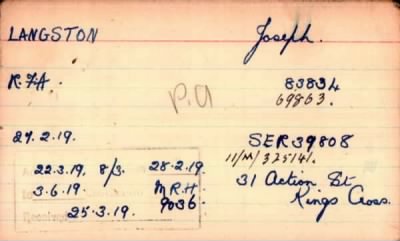 LANGSTON Joseph.
R.F.A. 83834
69863.
P.A
27.2.19. SER 39808
11/M/325141.
22.3.19, 8/3. 28.2.19. 31 Action St
3.6.19 M.R.H. Kings Cross.
25.3.19. 9036